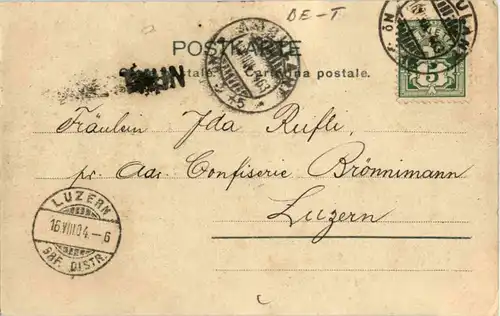 DE-T
POSTKARTE
Cartolina postale.
5
Fräulein Ida Rufli.
pr. Adr. Confiserie Brönnimann
Luzern
LUZERN
16.VIII.04.-6
BRF. DISTR.